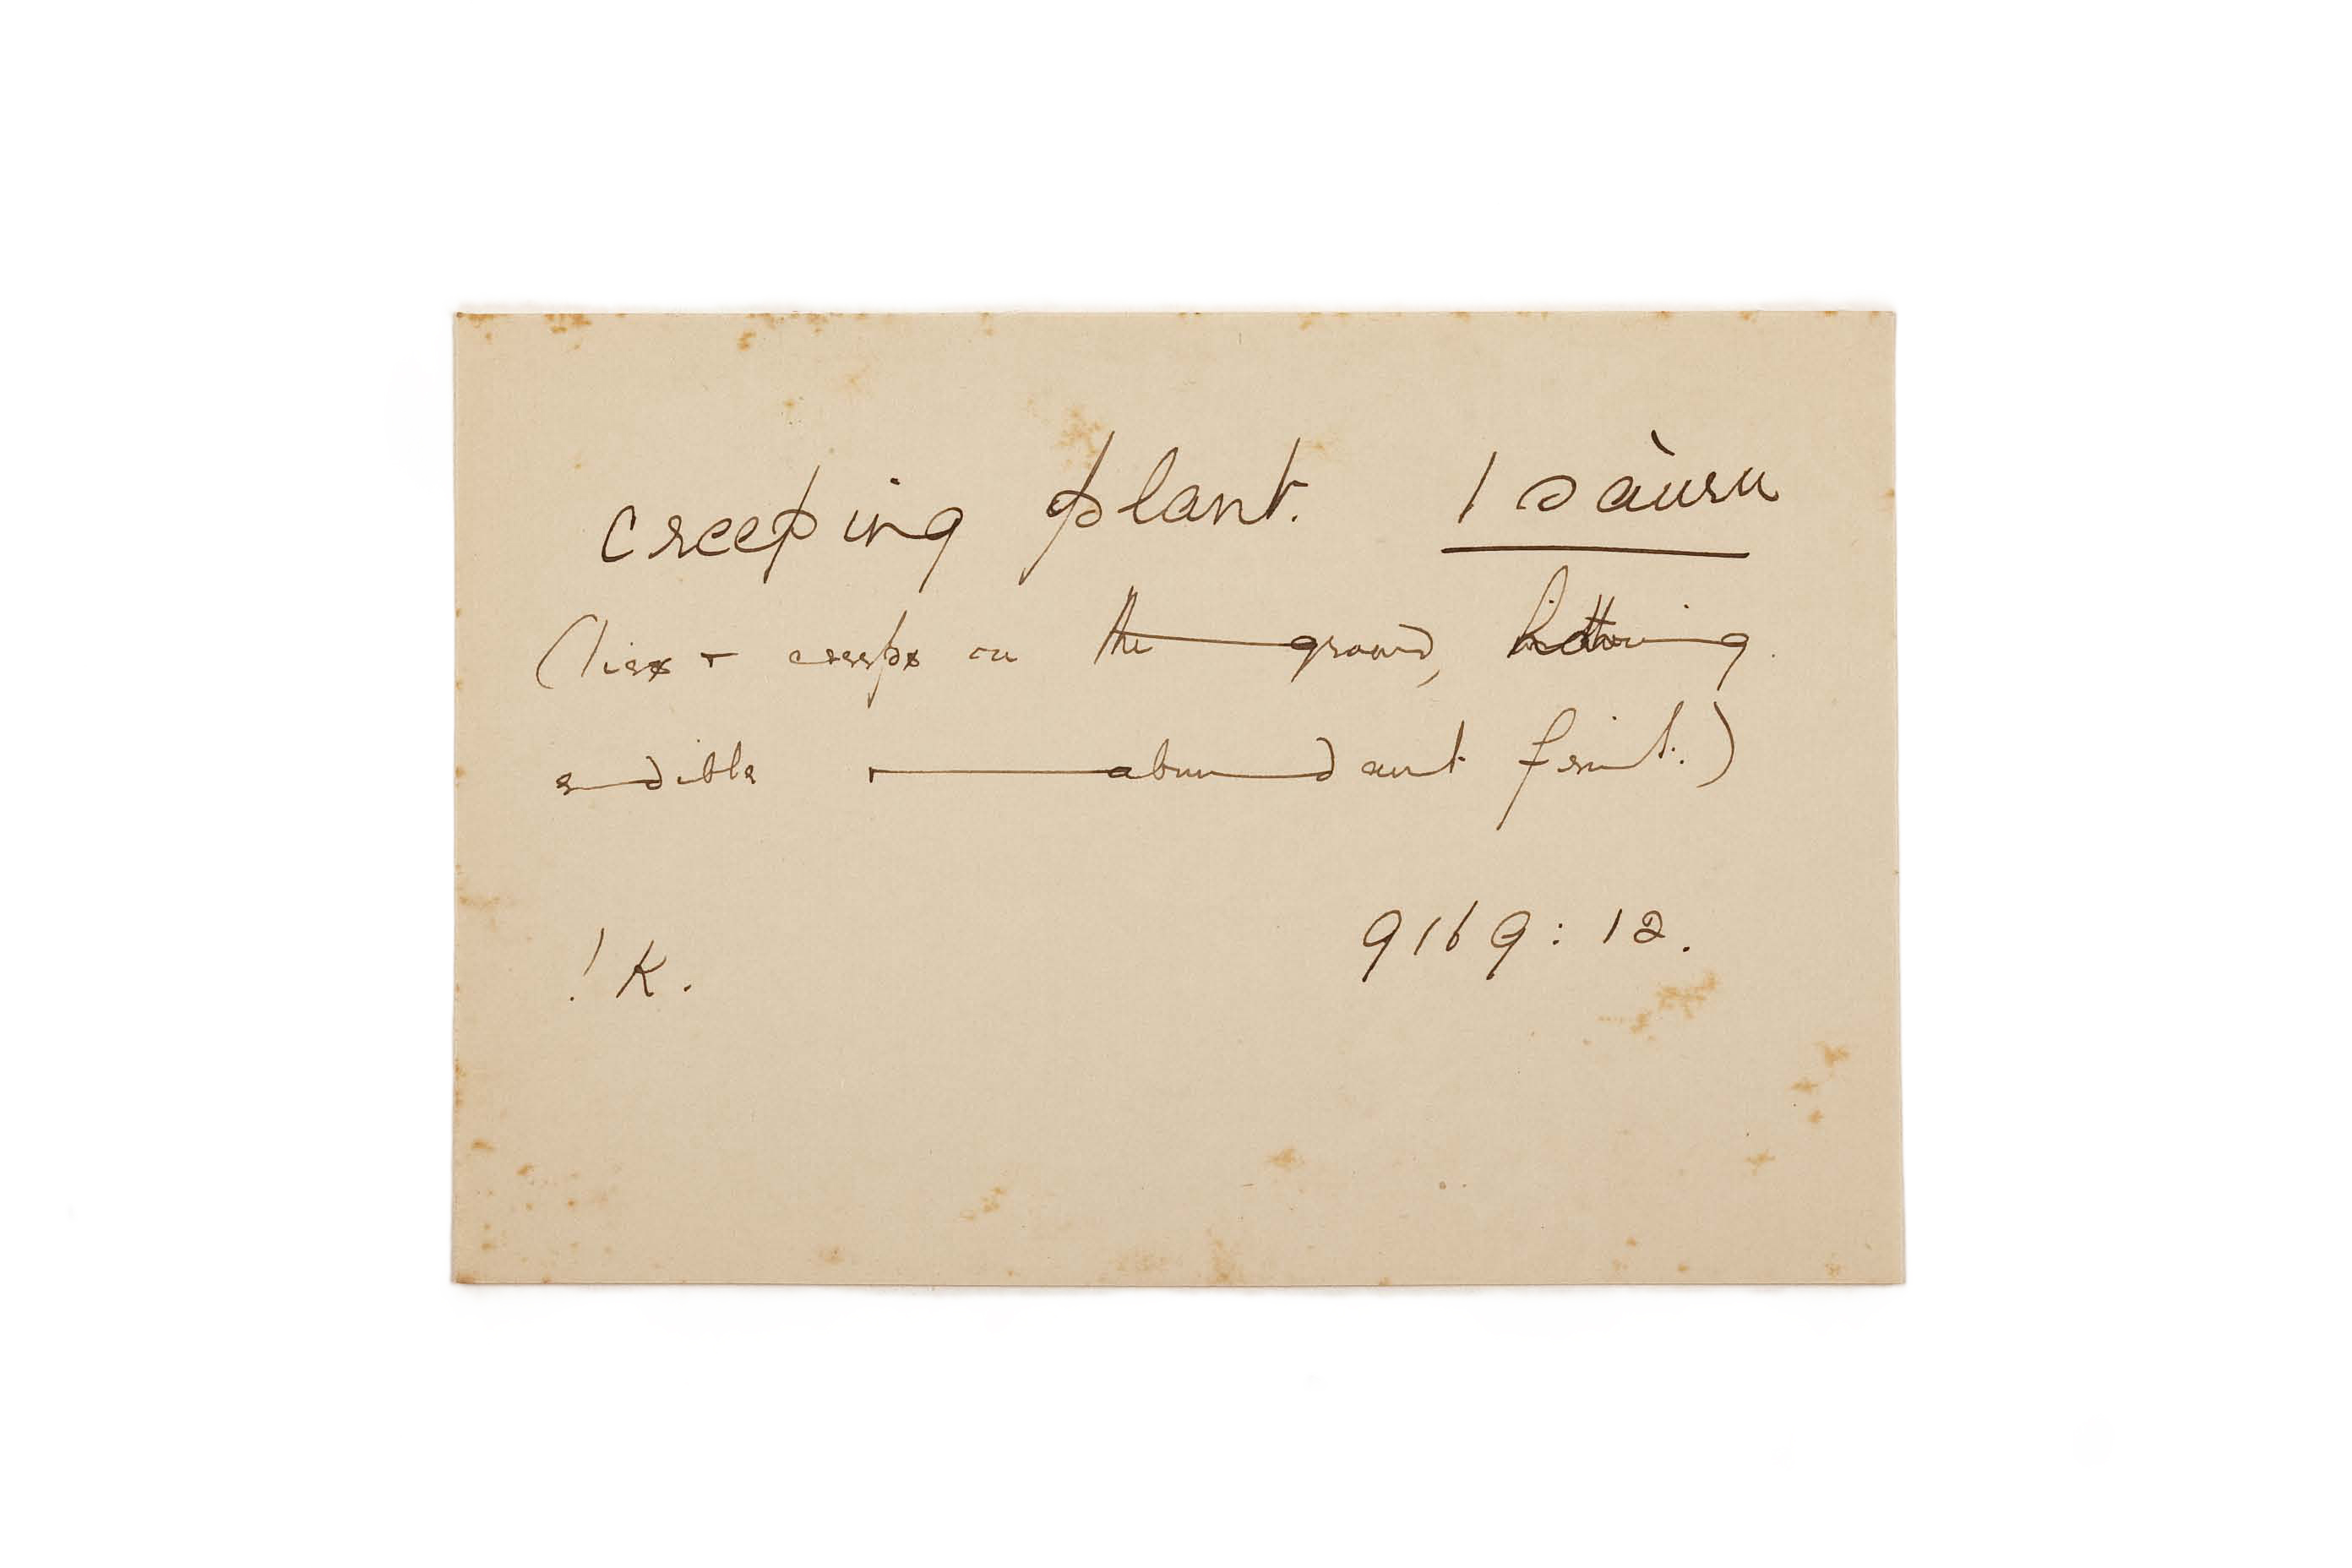 creeping plant.
(lies + creeps on the ground,
edible + abundant fruit.)
! K. 9169: 12.